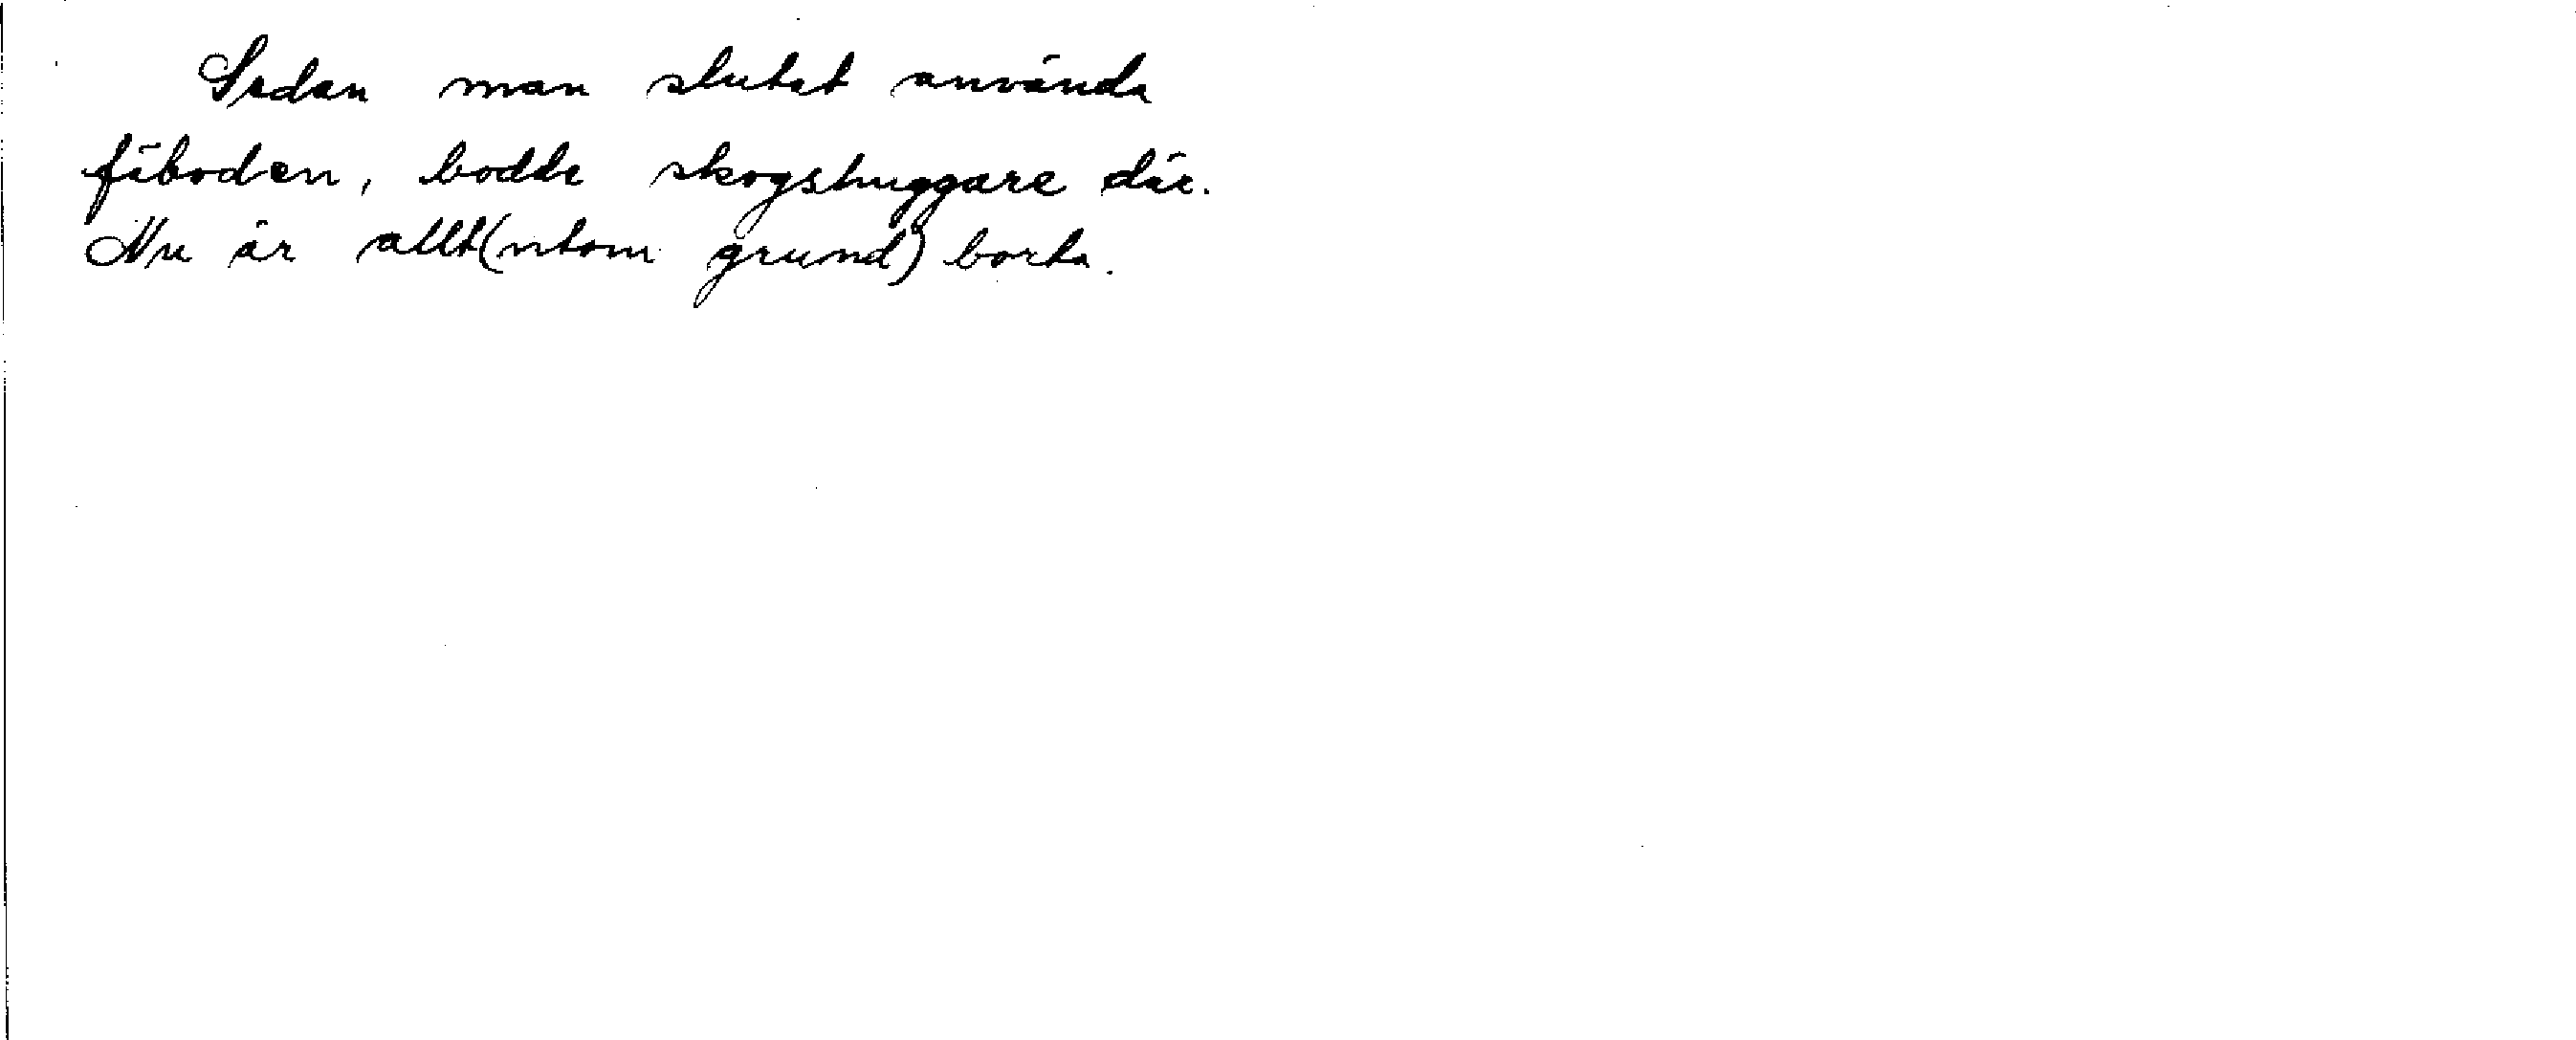 Sedan man slutat använda
fäboden, bodde skogshuggare där.
Nu är allt (utom grund) borta.